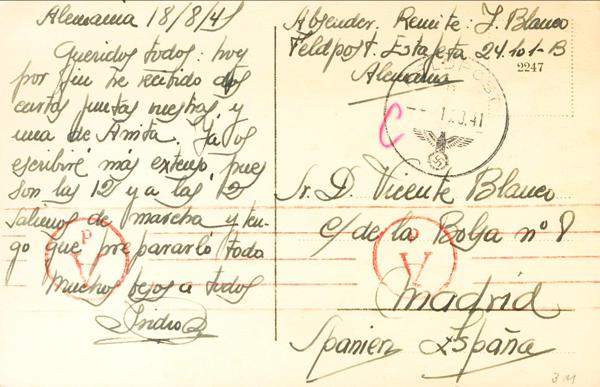 Alemania 18/8/41
Queridos todos: hoy
por fin he recibido dos
cartas juntas vuestras, y
una de Anita. Ya os
escribiré más extenso, pues
son las 12 y a las 12
salimos de marcha y ten-
go que prepararlo todo
Muchos besos a todos
Isidro
Absender. Remite: I. Blanco
Feldpost. Estafeta 24.101-B
Alemania
2247
FELDPOST
41
C
Sr. D. Vicente Blanco
c/ de la Bolsa nº 8
Madrid
Spanien España
A
d
A
d